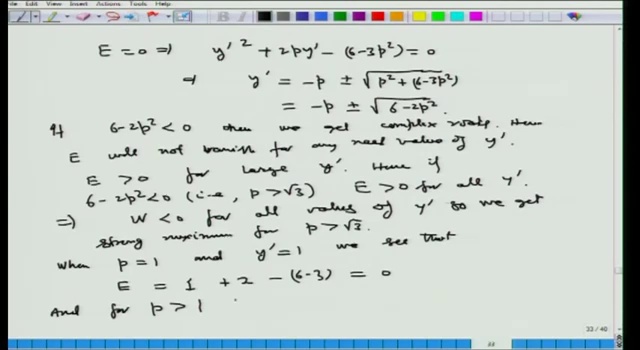 File Edit View Insert Actions Tools Help
E = 0 ⇒ y'² + 2py' - (6-3p²) = 0
⇒ y' = -p ± √(p² + (6-3p²))
= -p ± √(6-2p²)
If 6-2p² < 0 then we get complex roots. Hence
E will not vanish for any real value of y'.
E > 0 for large y'. Hence if
6-2p² < 0 (i.e., p > √3) E > 0 for all y'.
⇒ W < 0 for all values of y' so we get
strong maximum for p > √3.
When p = 1 and y' = 1 we see that
E = 1 + 2 - (6-3) = 0
And for p > 1
33 / 40
33